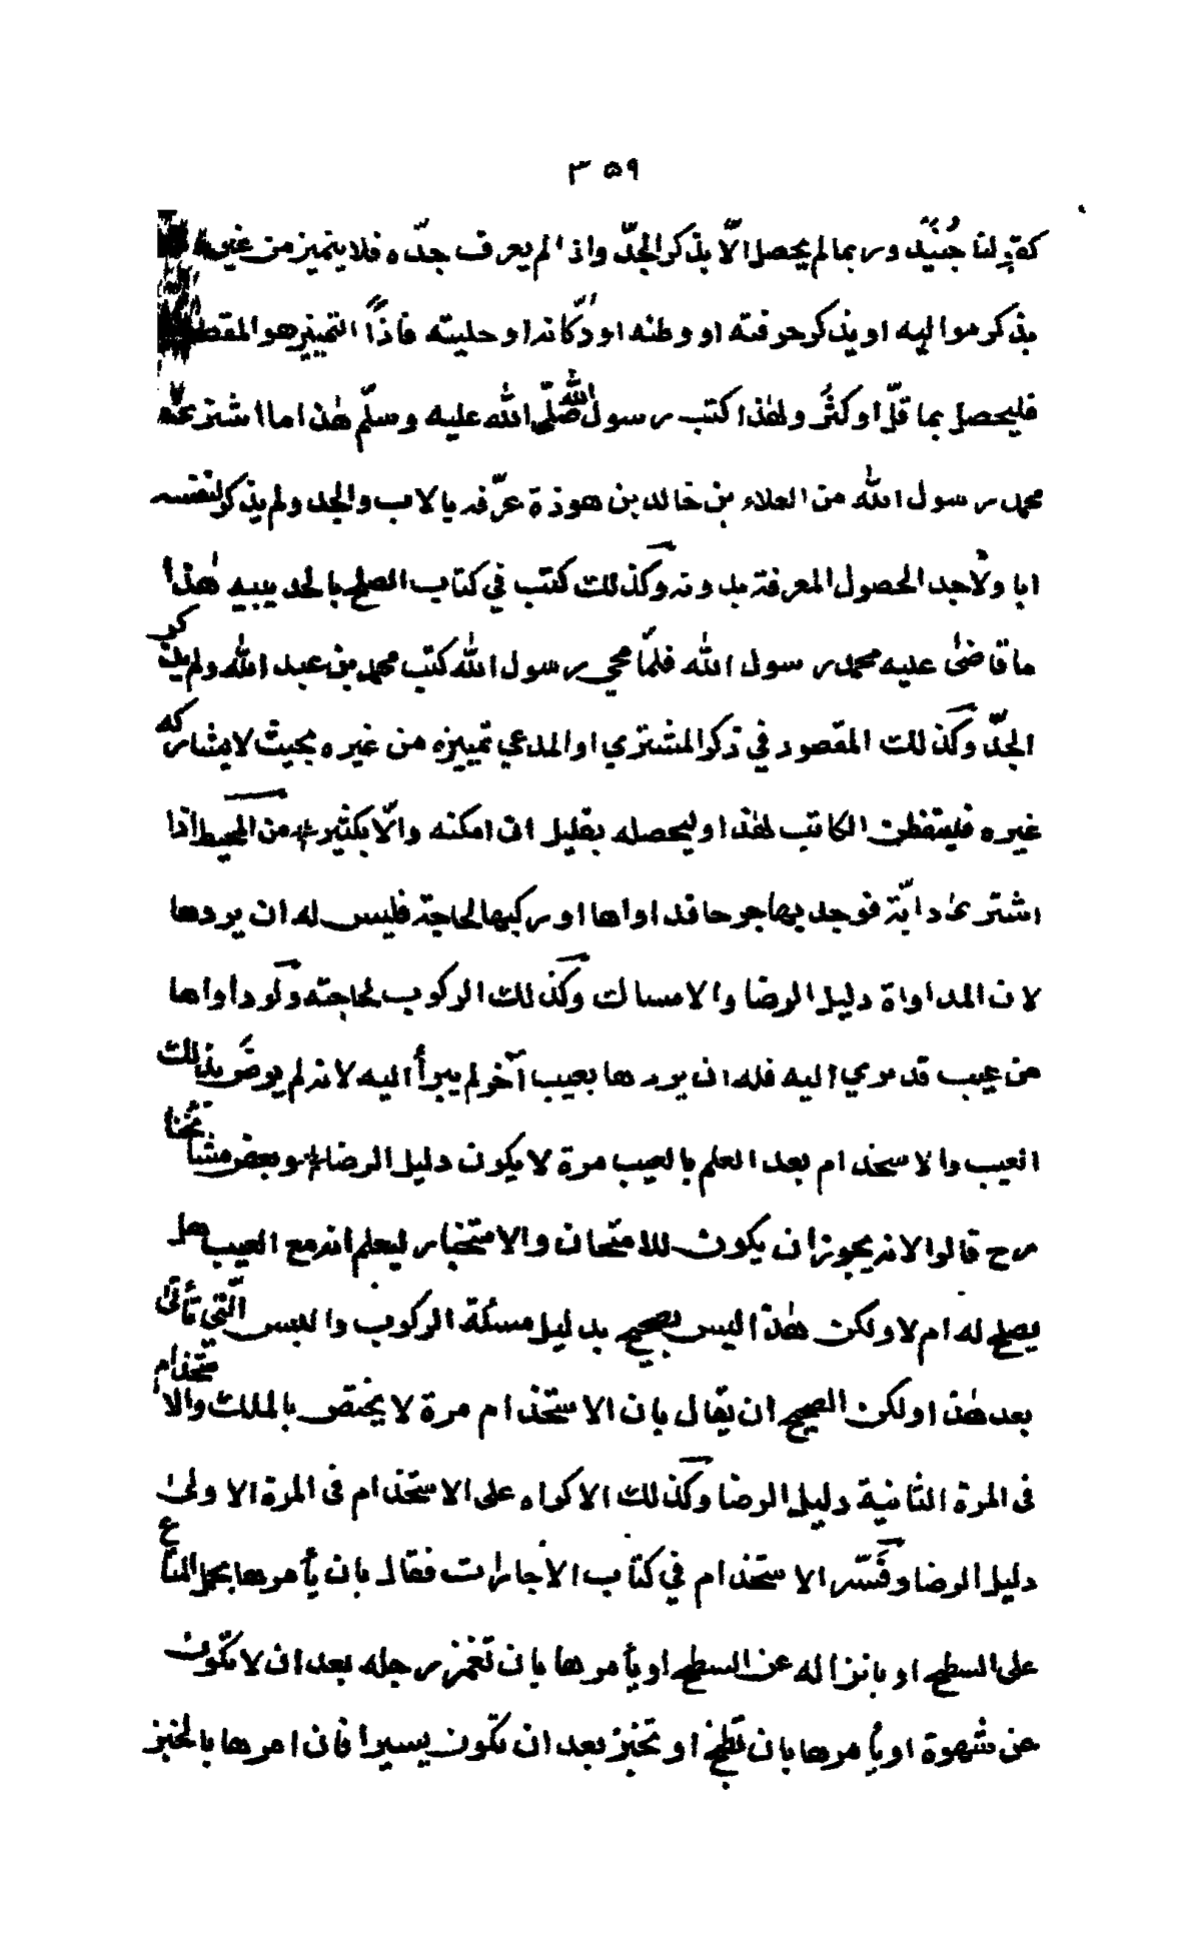 ۳۵۹
كقولنا جُنَيْد وربما لم يحصل الّا بذكر الجدّ واذا لم يعرف جدّه فلا يتميز من غيره
بذكر مواليه او يذكر حرفته او وطنه او دُكّانه او حليته فاذًا التمييز هو المقصود
فليحصل بما قلّ او كثُر ولهٰذا كتب رسول الله صلّى الله عليه وسلّم هٰذا ما اشترىٰ
محمد رسول الله من العلاء بن خالد بن هوذة عرّفه بالاب والجد ولم يذكر لنفسه
ابا ولاجدا لحصول المعرفة بدونه وكذلك كتب في كتاب الصلح بالحديبيه هٰذا
ما قاضىٰ عليه محمد رسول الله فلمّا محي رسول الله كتب محمد بن عبد الله ولم يذكر
الجدّ وكذلك المقصود في ذكر المشتري او المدعي تمييزه من غيره بحيث لا يشاركه
غيره فليتفطن الكاتب لهٰذا وليحصله بقليل ان امكنه والّا بكثير من المحيط اذا
اشترىٰ دابّة فوجد بها جرحا فداواها او ركبها لحاجة فليس له ان يردها
لان المداواة دليل الرضا والامساك وكذلك الركوب لحاجته ولو داواها
من عيب قد برئ اليه فله ان يردها بعيب آخر لم يبرأ اليه لانه لم يرضَ بذلك
العيب والاستخدام بعد العلم بالعيب مرة لا يكون دليل الرضا وبعض مشائخنا
رح قالوا لانه يجوز ان يكون للامتحان والاختبار ليعلم انه مع العيب هل
يصلح له ام لا ولكن هٰذا ليس بصحيح بدليل مسئلة الركوب واللبس الّتي تأتى
بعد هٰذا ولكن الصحيح ان يقال بان الاستخذام مرة لا يختص بالملك والاستخذام
فى المرة الثانية دليل الرضا وكذلك الاكراه على الاستخذام فى المرة الاولىٰ
دليل الرضا وفسّر الاستخذام في كتاب الاجارات فقال بان يأمرها بحمل المتاع
على السطح او بانزاله عن السطح او يأمرها بان تغمز رجله بعد ان لا يكون
عن شهوة او يأمرها بان تطبخ او تخبز بعد ان يكون يسيرا فان امرها بالخبز